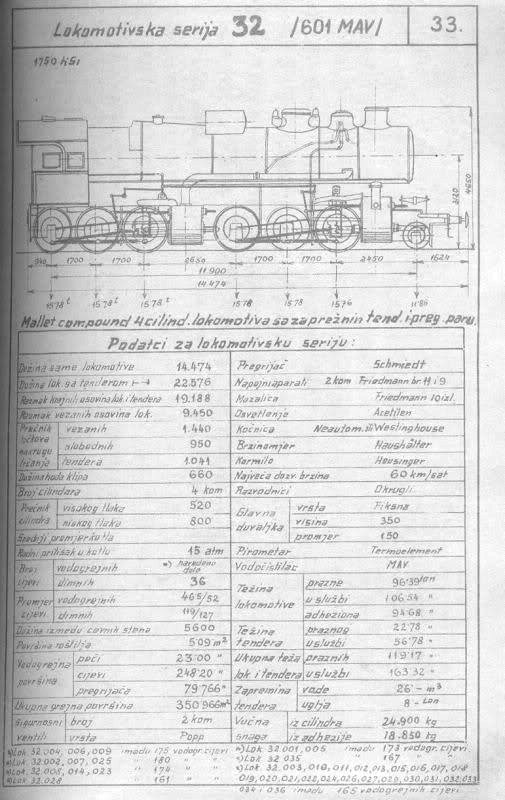 Lokomotivska serija 32 /601 MAV/ 33.
1750 KSi
4650
3120
940 1700 1700 2650 1700 1700 2450 1624
11.900
14.474
15.78 t 15.78 t 15.78 t 15.78 15.78 15.76 11.86
Mallet compound 4 cilind. lokomotiva sa zaprežnim tend. i preg. paru.
Podatci za lokomotivsku seriju:
Dužina same lokomotive 14.474 Pregrijač Schmiedt
Dužina lok. sa tenderom 22.576 Napojni aparati 2 kom Friedmann br 11 i 9
Razmak krajnjih osovina lok. i tendera 19.188 Mazalica Friedmann 10 izl.
Razmak vezanih osovina lok. 9.450 Osvetlenje Acetilen
Prečnik točkova na krugu ticanja vezanih 1.440 Kočnica Neautom. ili Westinghouse
slobodnih 950 Brzinomjer Haushälter
tendera 1.041 Kormilo Heusinger
Dužina hoda klipa 660 Najveća dozv. brzina 60 km/sat
Broj cilindara 4 kom Razvodnici Okrugli
Prečnik cilindra visokog tlaka 520 Glavna duvaljka vrsta Fiksna
niskog tlaka 800 visina 350
Srednji promjer kotla promjer 150
Radni pritisak u kotlu 15 atm Pirometar Termoelement
Broj cijevi vodogrejnih *) navedeno dole Vodočistilac MAV
dimnih 36 Težina lokomotive prazne 96.39 ton
Promjer cijevi vodogrejnih 46.5/52 u službi 106.54 "
dimnih 119/127 adheziona 94.68 "
Dužina između cevnih stena 5600 Težina tendera praznog 22.78 "
Površina roštilja 5.09 m² u službi 56.78 "
Vodogrejna površina peći 23.00 " Ukupna teža lok i tendera praznih 119.17 "
cijevi 248.20 " u službi 163.32 "
pregrijača 79.766 " Zapremina tendera vode 26 - m³
Ukupna grejna površina 350.966 m² uglja 8 - ton
Sigurnosni ventili broj 2 kom Vučna snaga iz cilindra 24.900 kg
vrsta Popp iz adhezije 18.850 kg
*) Lok 32.004, 006, 009 imadu 175 vodogr. cijevi
*) Lok 32.002, 007, 025 " 180 " "
*) Lok 32.008, 014, 023 " 174 " "
*) Lok 32.028 " 161 " "
*) Lok 32.001, 005 imadu 173 vodogr. cijevi
*) Lok 32.035 " 167 " "
*) Lok. 32.003, 010, 011, 012, 013, 015, 016, 017, 018
019, 020, 021, 022, 024, 026, 027, 029, 030, 031, 032, 033
034 i 036 imadu 165 vodogrejnih cijevi